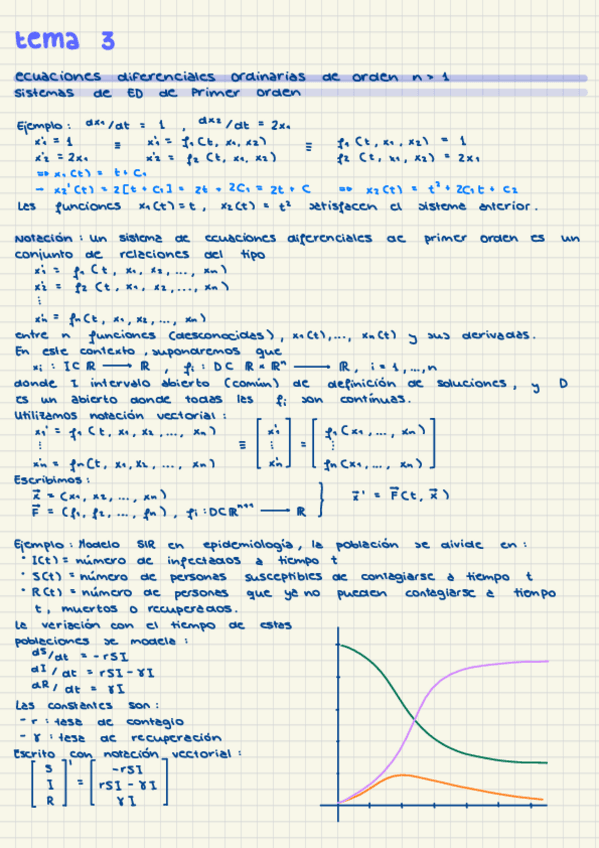 tema 3
ecuaciones diferenciales ordinarias de orden n > 1
sistemas de ED de Primer orden
Ejemplo: dx₁/dt = 1 , dx₂/dt = 2x₁
x₁' = 1 ≡ x₁' = f₁(t, x₁, x₂) ≡ f₁(t, x₁, x₂) = 1
x₂' = 2x₁ x₂' = f₂(t, x₁, x₂) f₂(t, x₁, x₂) = 2x₁
⇒ x₁(t) = t + C₁
→ x₂'(t) = 2[t + C₁] = 2t + 2C₁ = 2t + C ⇒ x₂(t) = t² + 2C₁t + C₂
Las funciones x₁(t) = t, x₂(t) = t² satisfacen el sistema anterior.
Notación: un sistema de ecuaciones diferenciales de primer orden es un
conjunto de relaciones del tipo
x₁' = f₁(t, x₁, x₂, ..., xn)
x₂' = f₂(t, x₁, x₂, ..., xn)
⋮
xn' = fn(t, x₁, x₂, ..., xn)
entre n funciones (desconocidas), x₁(t), ..., xn(t) y sus derivadas.
En este contexto, supondremos que
xi : I ⊂ ℝ → ℝ , fi : D ⊂ ℝ × ℝⁿ → ℝ, i = 1, ..., n
donde I intervalo abierto (común) de definición de soluciones, y D
es un abierto donde todas las fi son contínuas.
Utilizamos notación vectorial:
x₁' = f₁(t, x₁, x₂, ..., xn) ≡ [x₁'] = [f₁(x₁, ..., xn)]
⋮ ⋮ ⋮
xn' = fn(t, x₁, x₂, ..., xn) [xn'] [fn(x₁, ..., xn)]
Escribimos:
x⃗ = (x₁, x₂, ..., xn) } x⃗' = F⃗(t, x⃗)
F⃗ = (f₁, f₂, ..., fn), fi : D ⊂ ℝⁿ⁺¹ → ℝ
Ejemplo: Modelo SIR en epidemiología, la población se divide en:
· I(t) = número de infectados a tiempo t
· S(t) = número de personas susceptibles de contagiarse a tiempo t
· R(t) = número de personas que ya no pueden contagiarse a tiempo
t, muertos o recuperados.
La variación con el tiempo de estas
poblaciones se modela:
dS/dt = -rSI
dI/dt = rSI - γI
dR/dt = γI
Las constantes son:
- r : tasa de contagio
- γ : tasa de recuperación
Escrito con notación vectorial:
[S]' = [-rSI]
[I] [rSI - γI]
[R] [γI]